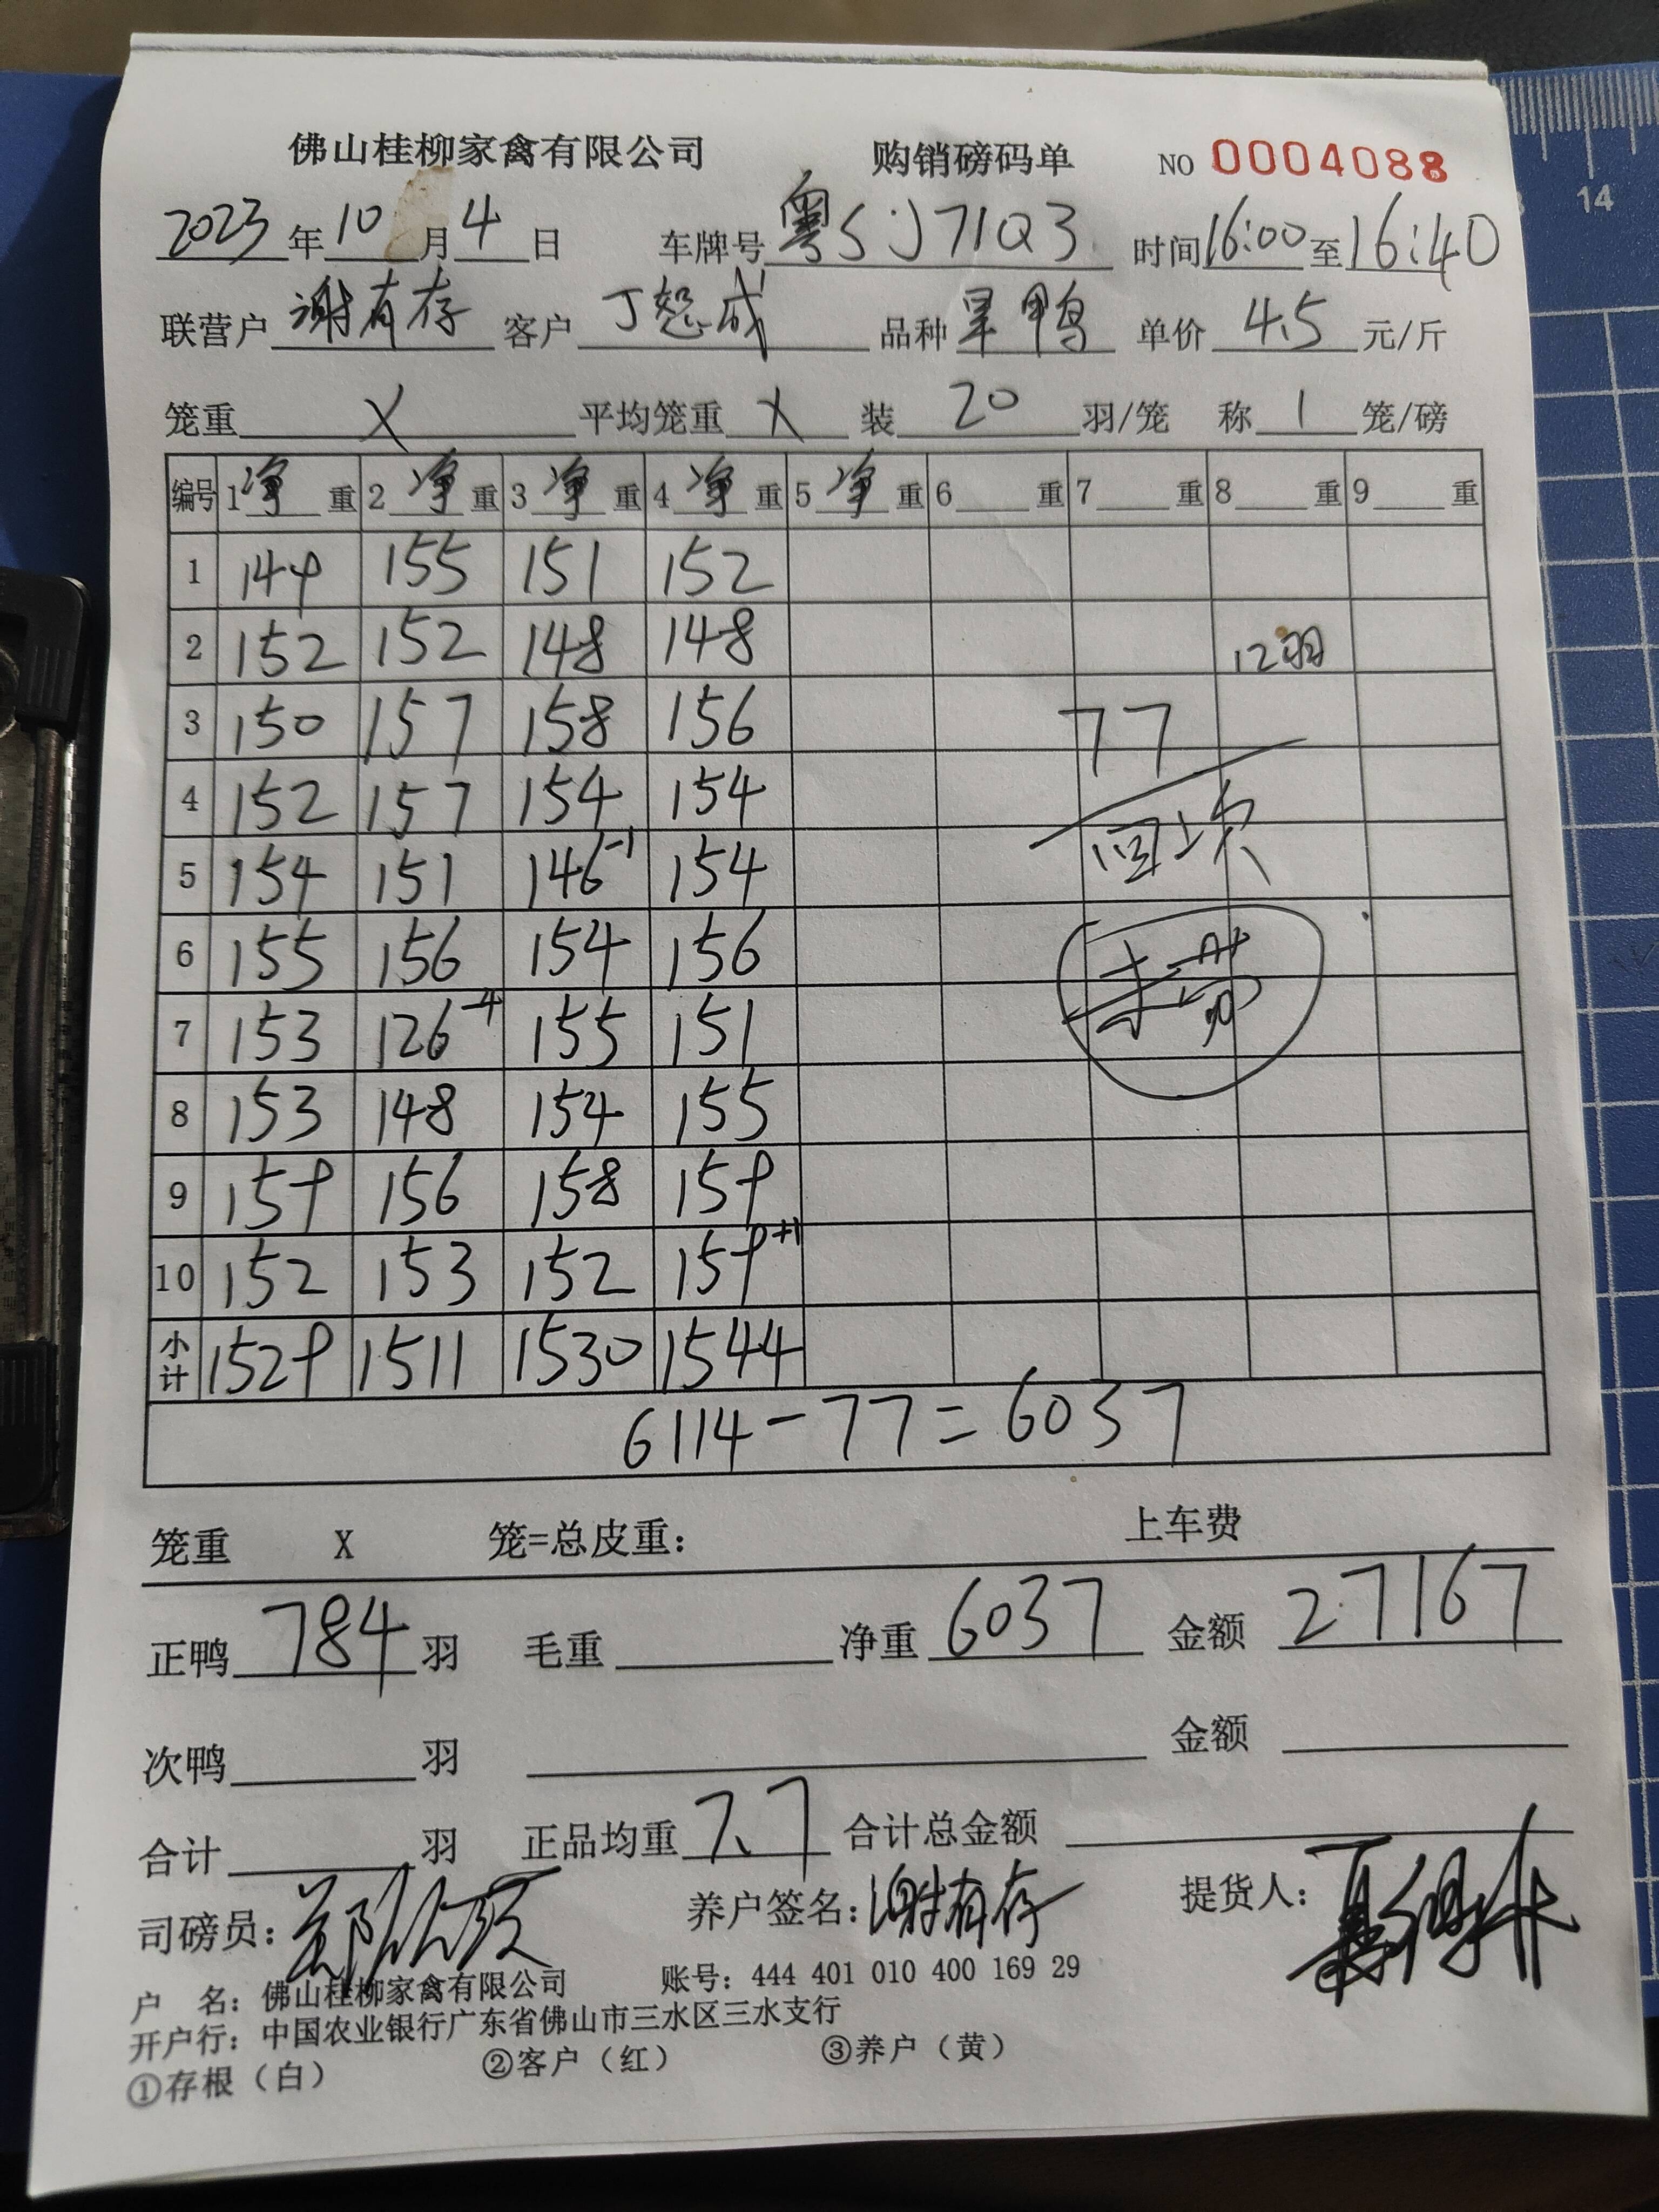 佛山桂柳家禽有限公司 购销磅码单 NO 0004088
2023年10月4日 车牌号粤SJ71Q3 时间16:00至16:40
联营户 谢有存 客户 丁恕成 品种 旱鸭 单价 4.5 元/斤
笼重 X 平均笼重 X 装 20 羽/笼 称 1 笼/磅
编号 1净重 2净重 3净重 4净重 5净重 6重 7重 8重 9重
1 149 155 151 152
2 152 152 148 148 12羽
3 150 157 158 156 77
4 152 157 154 154
5 154 151 146-1 154
6 155 156 154 156
7 153 126-4 155 151
8 153 148 154 155
9 159 156 158 159
10 152 153 152 159+1
小计 1529 1511 1530 1544
6114-77=6037
笼重 X 笼=总皮重: 上车费
正鸭 784 羽 毛重 净重 6037 金额 27167
次鸭 羽 金额
合计 羽 正品均重 7.7 合计总金额
司磅员: 养户签名:谢有存 提货人:
户 名: 佛山桂柳家禽有限公司 账号: 444 401 010 400 169 29
开户行: 中国农业银行广东省佛山市三水区三水支行
①存根（白） ②客户（红） ③养户（黄）
14